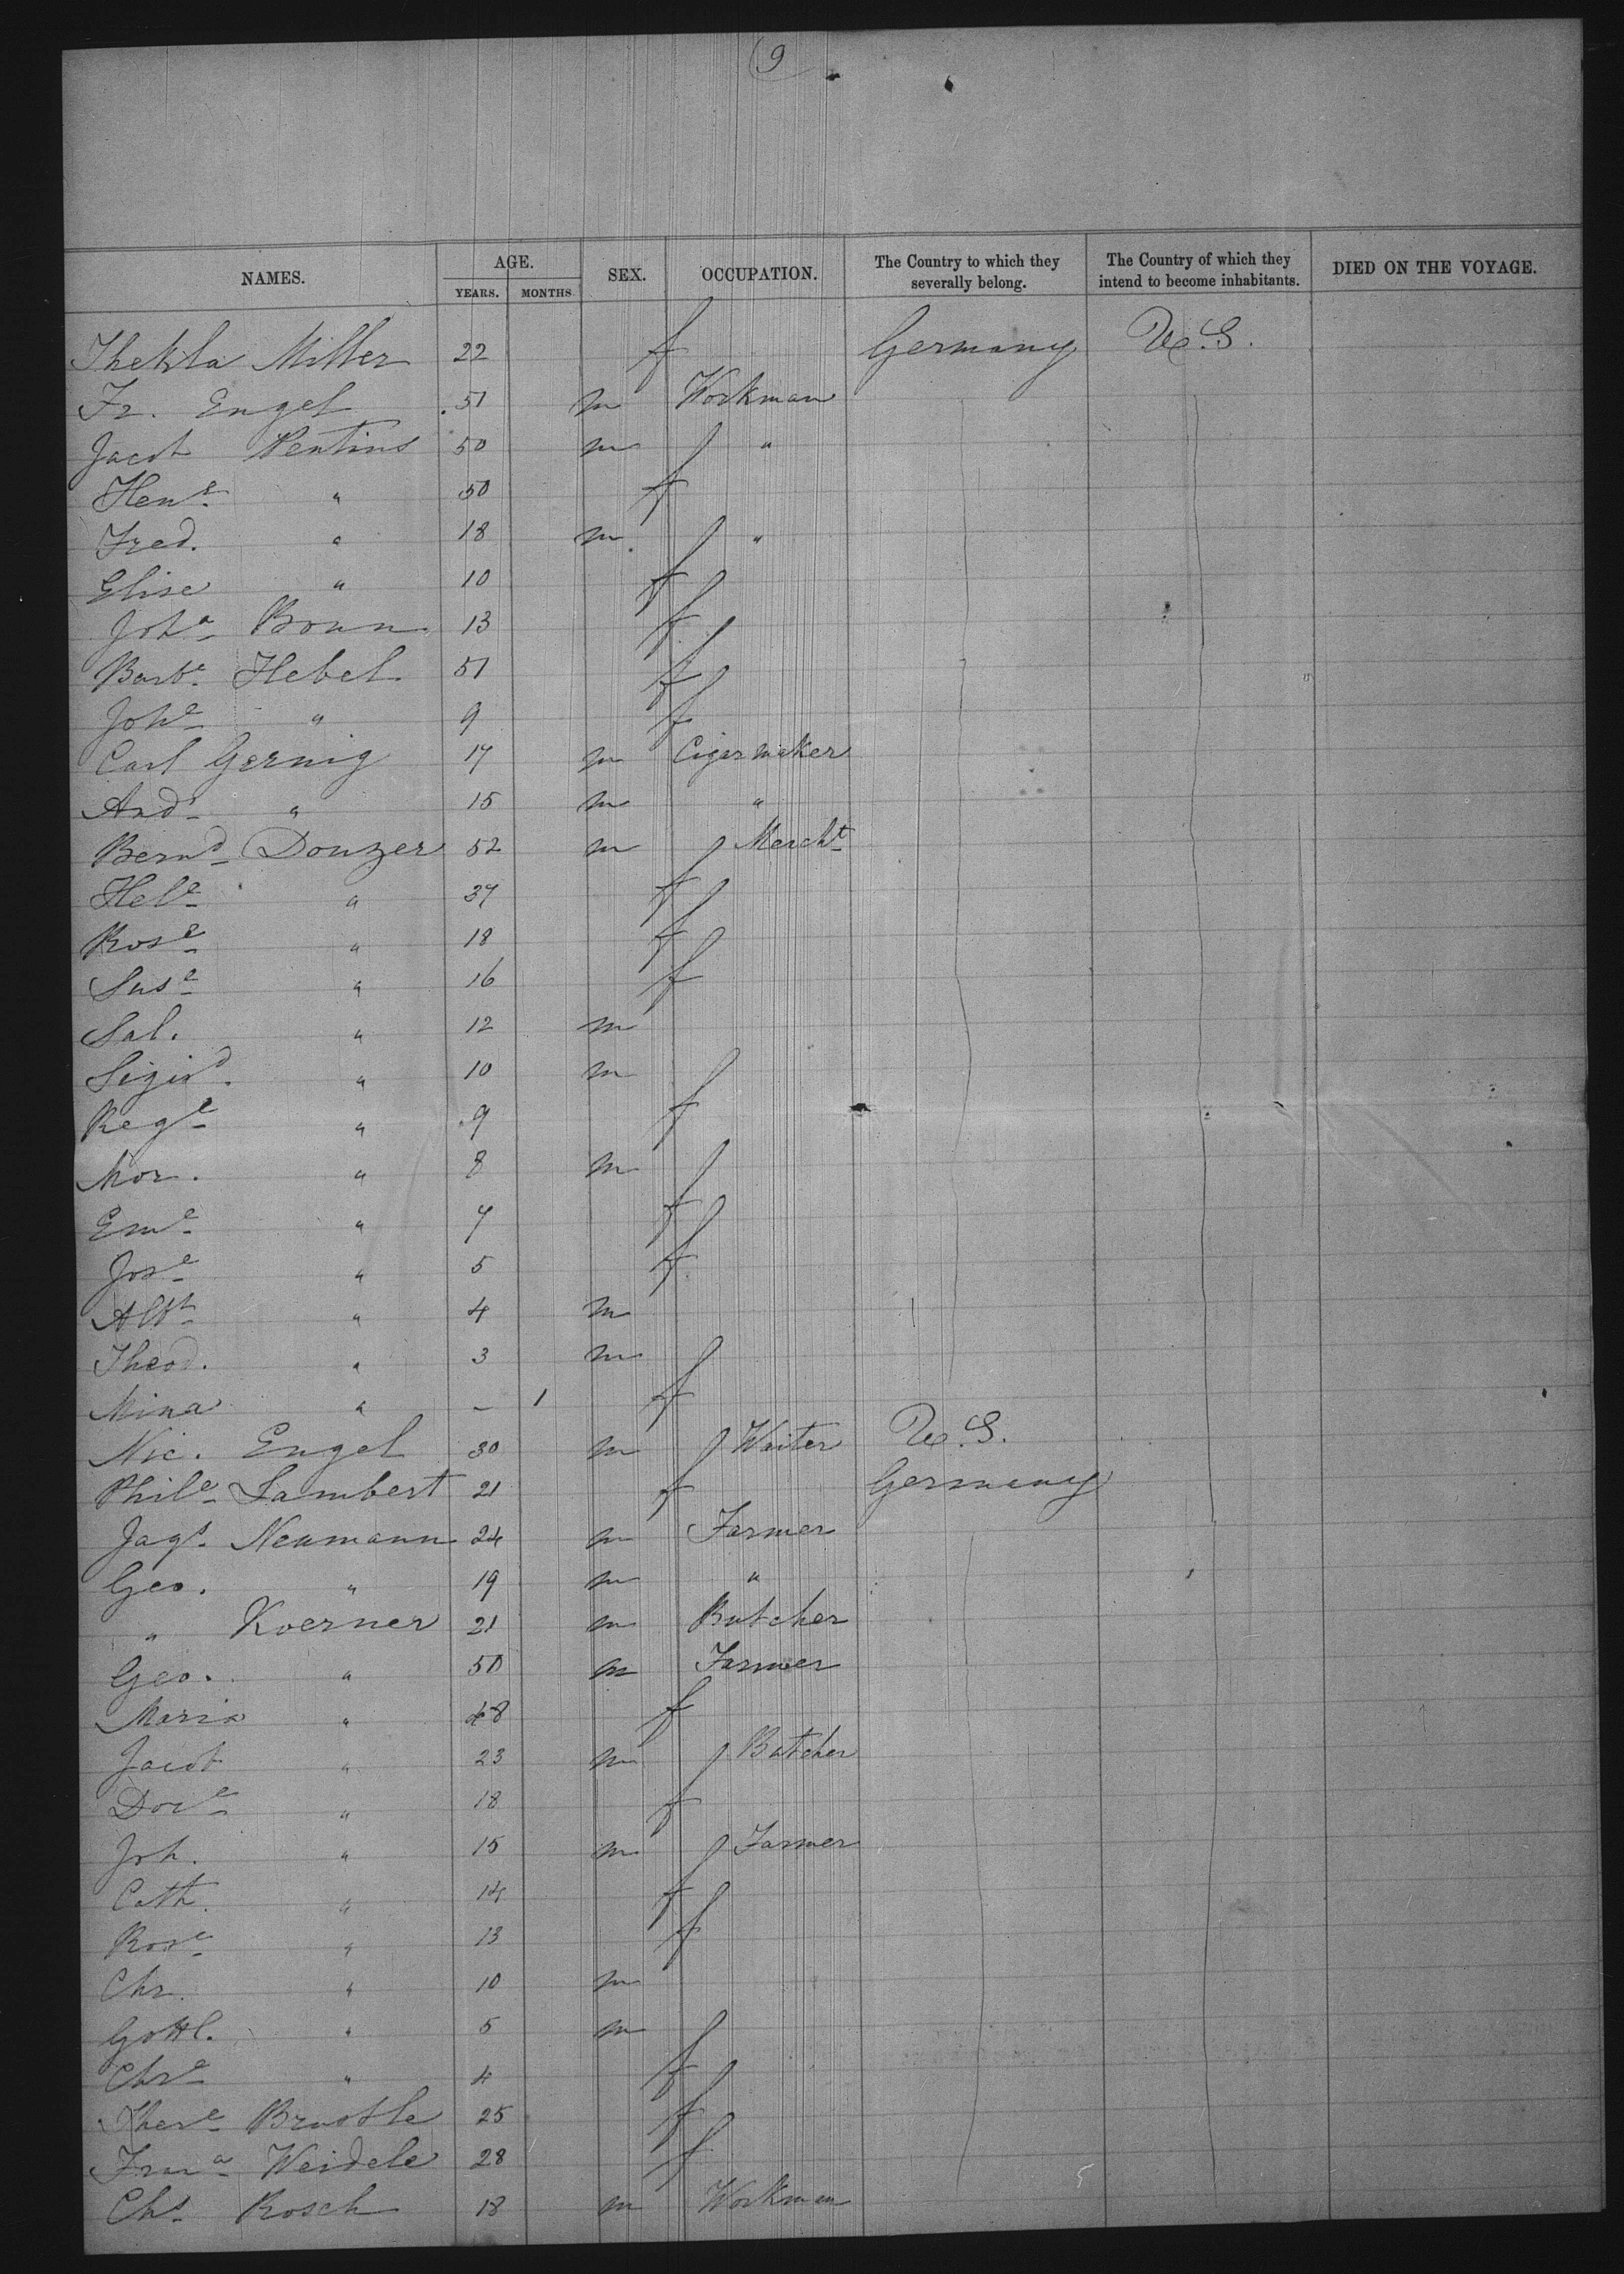 9
NAMES. AGE. YEARS. MONTHS SEX. OCCUPATION. The Country to which they severally belong. The Country of which they intend to become inhabitants. DIED ON THE VOYAGE.
Thekla Miller 22 f Germany U.S.
Fr. Engel 51 m Workman
Jacob Pentins 50 m "
Hen.e " 50 f
Fred. " 18 m "
Elise " 10 f
Joh.a Bonn 13 f
Barb.e Hebel 51 f
Joh.e " 9 f
Carl Gernig 17 m Cigarmaker
And.s " 15 m "
Bern.d Donzer 52 m Mercht
Hel.e " 37 f
Ros.e " 18 f
Sus.e " 16 f
Sal. " 12 m
Sigis.d " 10 m
Reg.e " 9 f
Mor. " 8 m
Em.e " 7 f
Jos.e " 5 f
Alb.t " 4 m
Theod. " 3 m
Mina " - 1 f
Nic. Engel 30 m Waiter U.S.
Phil.e Lambert 21 f Germany
Jaq.s Neumann 24 m Farmer
Geo. " 19 m "
" Koerner 21 m Butcher
Geo. " 50 m Farmer
Maria " 48 f
Jacob " 23 m Butcher
Dor.e " 18 f
Joh. " 15 m Farmer
Cath. " 14 f
Ros.e " 13 f
Chr. " 10 m
Gottl. " 5 m
Chr.e " 4 f
Ther.e Brustle 25 f
Fran.a Weidele 28 f
Chs. Rosch 18 m Workman